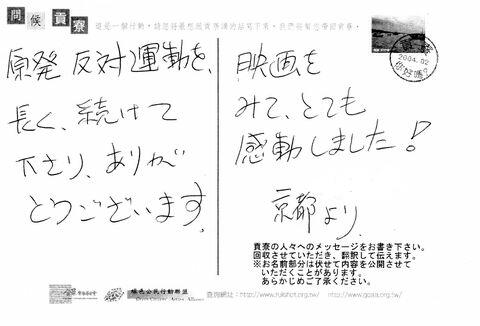 問候貢寮
這是一個行動，請您將最想跟貢寮講的話寫下來，我們將幫您帶回貢寮。
原発反対運動を、
長く、続けて
下さり、ありが
とうございます。
映画を
みて、とても
感動しました！
京都より、
2004.02
你好嗎?
貢寮の人々へのメッセージをお書き下さい。
回収させていただき、翻訳して伝えます。
※お名前部分は伏せて内容を公開させて
いただくことがあります。
あらかじめご了承ください。
綠色公民行動聯盟
Green Citizens' Action Alliance
查詢網址：http://www.rukshot.org.tw/ http://www.gcaa.org.tw/